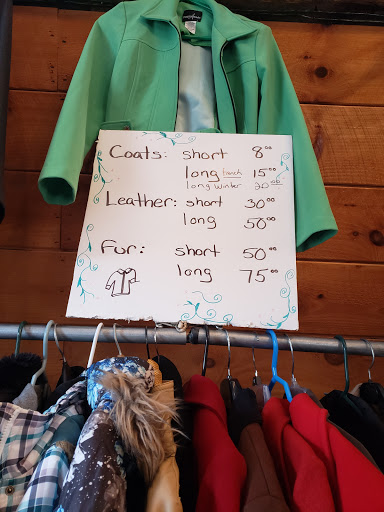 Coats: short 8⁰⁰
long trench 15⁰⁰
long winter 20⁰⁰
Leather: short 30⁰⁰
long 50⁰⁰
Fur: short 50⁰⁰
long 75⁰⁰